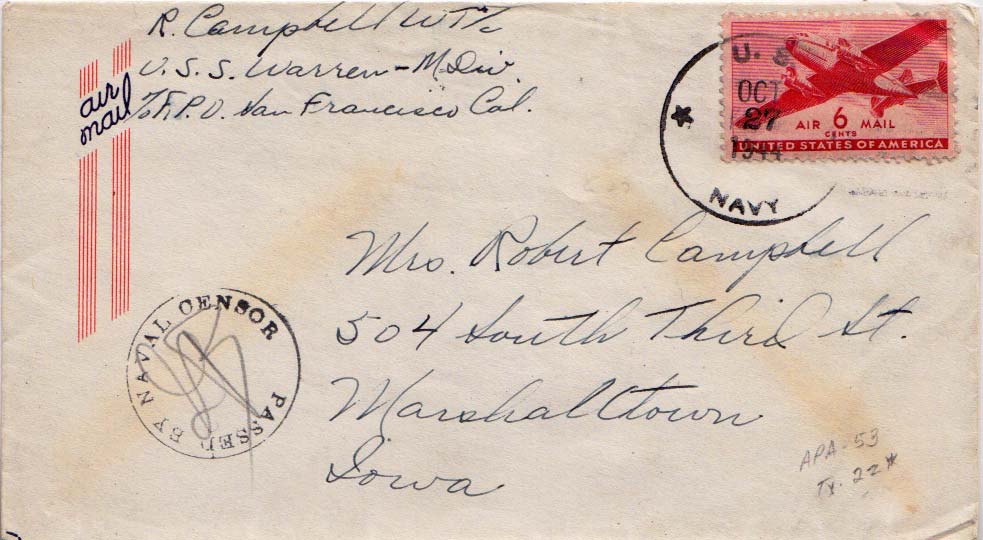 R. Campbell WT 2/c
U.S.S. Warren - M Div.
℅ F.P.O. San Francisco Cal.
air
mail
U. S.
OCT
27
1944
NAVY
AIR 6 MAIL
CENTS
UNITED STATES OF AMERICA
Mrs. Robert Campbell
504 South Third St.
Marshalltown
Iowa
PASSED BY NAVAL CENSOR
APA-53
Tx. 22*